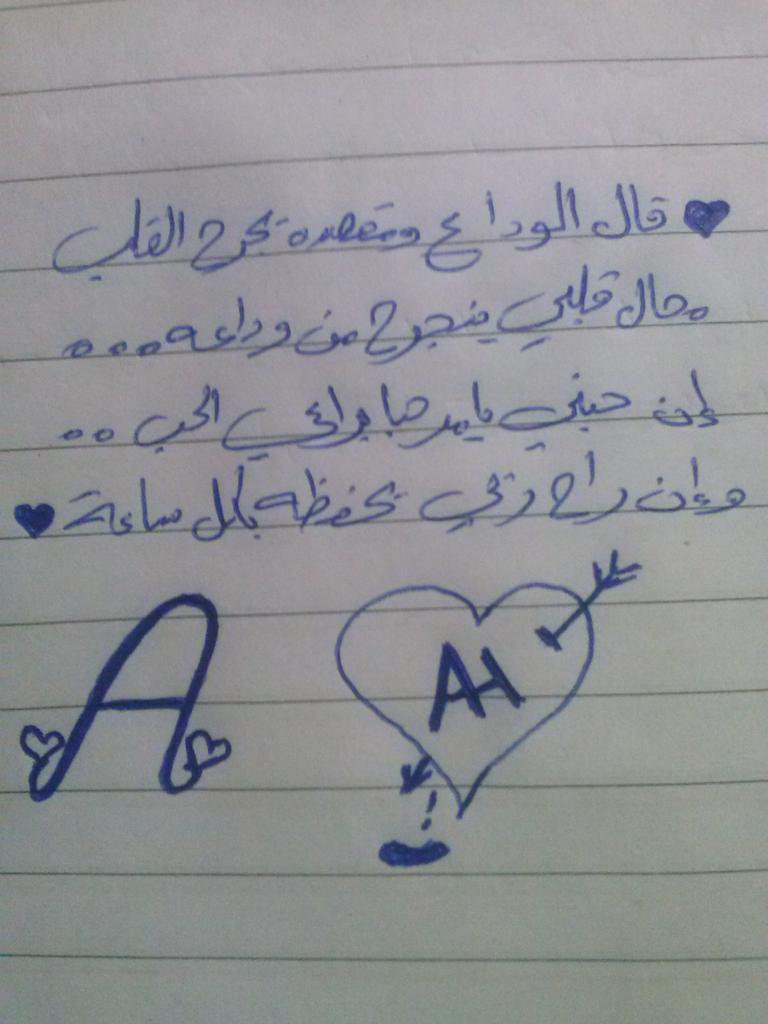 قال الوداع ومقصده تجرح القلب
محال قلبي ينجرح من وداعه...
إن حبني يا مرحبا براعي الحب..
وإن راح ربي يحفظه بكل ساعة
A AH